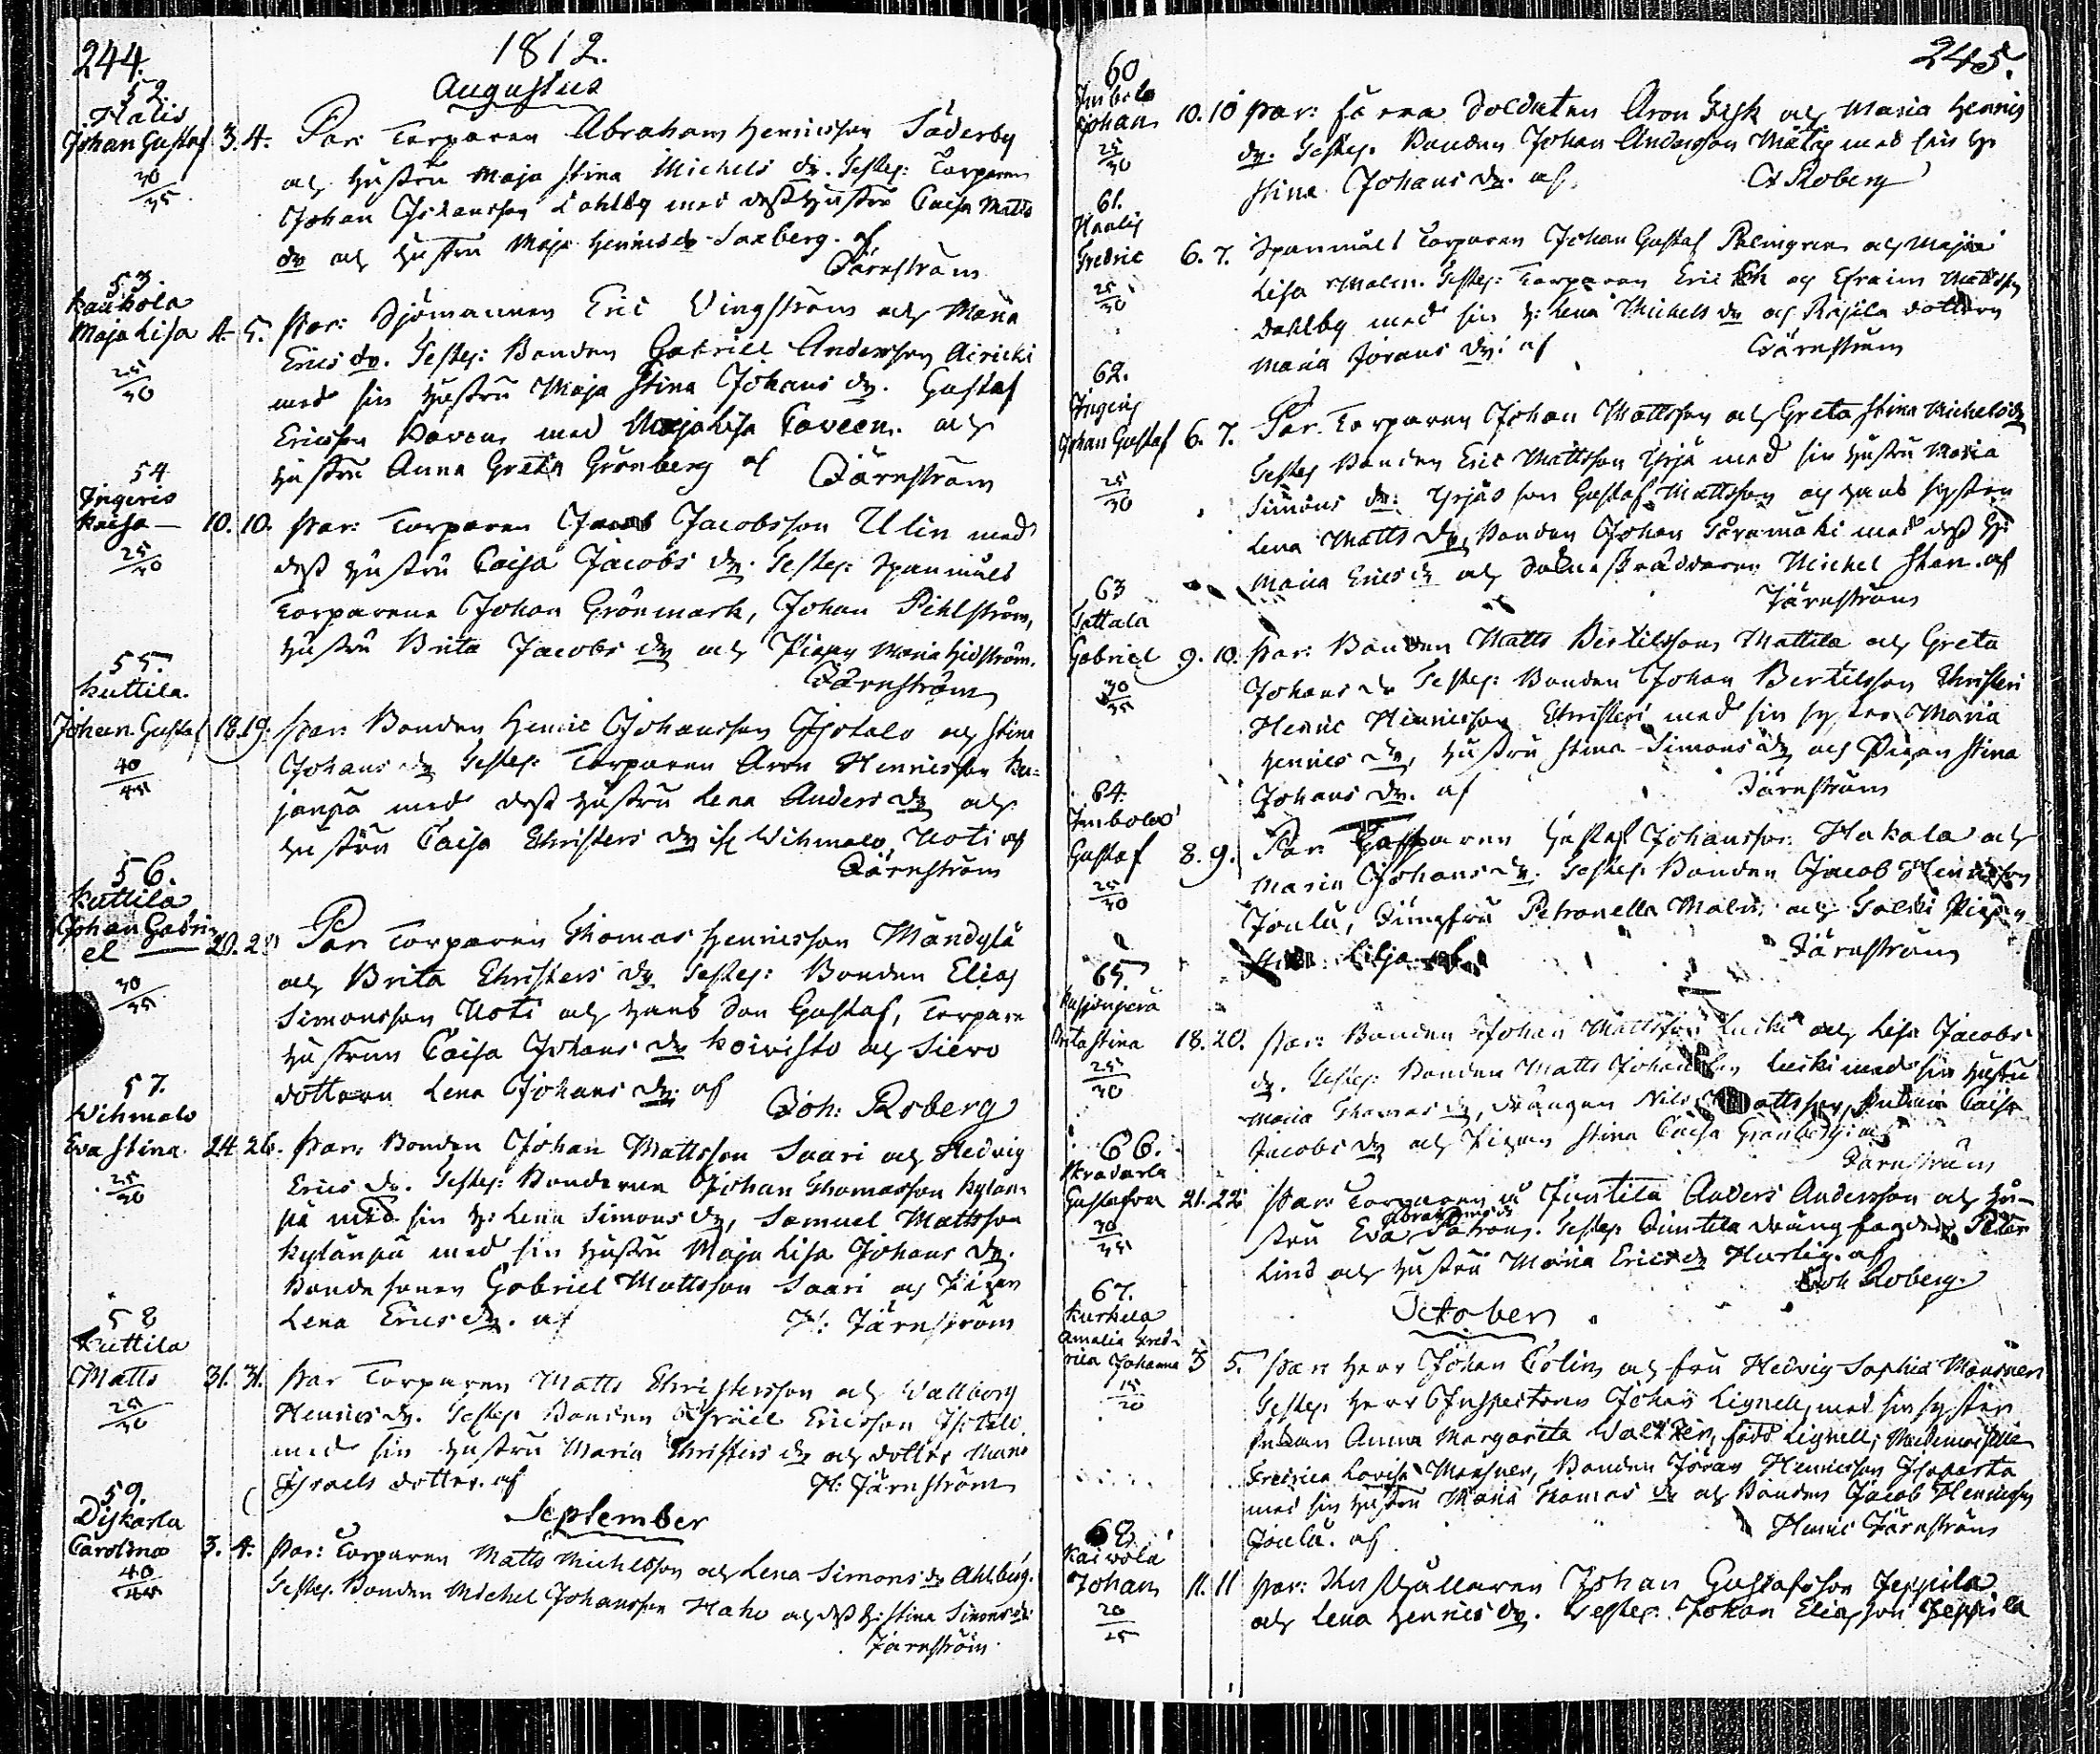 244.
1812.
Augustus
52.
Halis
Johan Gustaf 3. 4. Par: Torparen Abraham Henricsson Söderby
30/35
och Hustru Maja Stina Michels dr. Testes: Torparen
Johan Johansson Dahlby med dess Hustru Caisa Matts
dr och Hustru Maja Henricsdr Saxberg. af
Järnström
53.
Kaukola
Maja Lisa 4. 5. Par: Sjömannen Eric Vingström och Maria
25/30
Erics dr. Testes: Bonden Gabriel Andersson Airicki
med sin Hustru Maja Stina Johans dr. Gustaf
Ericsson med Maja Lisa och
Hustru Anna Greta Grönberg af Järnström
54
Ingeris
Kaisa — 10. 10. Par: Torparen Jacob Jacobsson Ulin med
25/30
dess Hustru Caisa Jacobs dr. Testes: Spanmåls
Torparena Johan Grönmark, Johan Pihlström,
Hustru Brita Jacobs dr och Pigan Maria Hidström.
Järnström
55.
Kuttila.
Johan Gustaf 18. 19. Par: Bonden Henric Johansson Isotalo och Stina
40/45
Johans dr Testes: Torparen Aron Henricsson Ku-
janpä med dess Hustru Lena Anders dr och
Hustru Caisa Christers dr if. Wihmalo, Uoti af
Järnström
56.
Kuttila
Johan Gabri
el — 20. 21 Par: Torparen Thomas Henricsson Mändylä
30/35
och Brita Christers dr Testes: Bonden Elias
Simonsson Uoti och hans Son Gustaf, Torpare
Hustrun Caisa Johans dr Koivisto och Siero
dottern Lena Johans dr. af
Joh: Roberg
57.
Wihmalo
Eva Stina 24. 26. Par: Bonden Johan Mattsson Saari och Hedvig
25/30
Erics dr. Testes: Bonderne Johan Thomasson Kylän-
pä med sin H: Lena Simons dr, Samuel Mattsson
Kylänpä med sin Hustru Maja Lisa Johans dr.
Bonde Sonen Gabriel Mattsson Saari och Pigan
Lena Erics dr. af H: Järnström
58
Kuttila
Matts 31. 31. Par: Torparen Matts Christersson och Wallborg
25/30
Henrics dr. Testes: Bonden Israel Ericsson Isotalo
med sin Hustru Maria Christers dr och dotter Maria
Israels dotter. af H: Järnström
September
59.
Diskarla
Carolina 3. 4. Par: Torparen Matts Michelsson och Lena Simons dr Ahlberg.
40/45
Testes: Bonden Michel Johansson Haho och dess H: Stina Simons dr.
Järnström
245.
60
Imbola
Johan 10. 10 Par: förra Soldaten Aron Fisk och Maria Henrics
25/30
dr. Testes: Bonden Johan Andersson med sin H:
Stina Johans dr. af Roberg
61.
Haalis
Fredric 6. 7. Spanmåls Torparen Johan Gustaf Palmgren och Maja
25/30
Lisa Malm. Testes: Torparen Eric Ek och Efraim Mattsson
Dahlby med sin H: Lena Michels dr och dottern
Maria Jörans dr: af Järnström
62.
Ingeris
Johan Gustaf 6. 7. Par: Torparen Johan Mattsson och Greta Stina Michels dr
25/30
Testes Bonden Eric Mattsson Yrjä med sin Hustru Maria
Simons dr: Yrjäs son Gustaf Mattsson och hans Syster
Lena Matts dr, Bonden Johan med dess H:
Maria Erics dr och Sockneskräddaren Michel Sten. af
Järnström
63
Tattala
Gabriel 9. 10. Par: Bonden Matts Bertilsson Mattila och Greta
30/35
Johans dr Testes: Bonden Johan Bertilsson Christeri
Henric Henricsson Christeri med sin syster Maria
Henrics dr, Hustru Stina Simons dr och Pigan Stina
Johans dr. af Järnström
64.
Imbola
Gustaf 8. 9. Par: Torparen Gustaf Johansson Hakala och
25/30
Maria Johans dr. Testes: Bonden Jacob Henricsson
Joulu, Jungfru Petronella Malm och Pigan
Stina Lilja Järnström
65.
Brita Stina 18. 20. Par: Bonden Johan Mattsson Luski och Lisa Jacobs
25/30
dr. Testes: Bonden Matts Johansson Luski med sin Hustru
Maria Thomas dr, Drängen Nils Mattsson, Caisa
Jacobs dr och Pigan Stina Caisa Grönberg af
Järnström
66.
Skradarla
Gustafva 21. 22. Par: Torparen å Juntila Anders Andersson och Hu-
30/35
stru Eva Abrahams dr. Testes: Juntila
Lind och Hustru Maria Erics dr Hurtig. af
Joh Roberg.
October
67.
Kurkela
Amalia Fred-
rica Johanna 3 5. Par: Herr Johan Colin och Fru Hedvig Sophia Monsner
15/20
Testes: Herr Inspectoren Johan Lignell, med sin syster
Anna Margareta Walther, född Lignell; Mademoiselle
Fredrica Lovisa Monsner, Bonden Jöran Henricsson
med sin Hustru Maria Thomas dr och Bonden Jacob Henricsson
Joulu. af Henric Järnström
68.
Kaivola
Johan 11. 11 Par: Johan Gustafsson Jeppila
20/25
och Lena Henrics dr. Testes: Johan Eliasson Jeppila